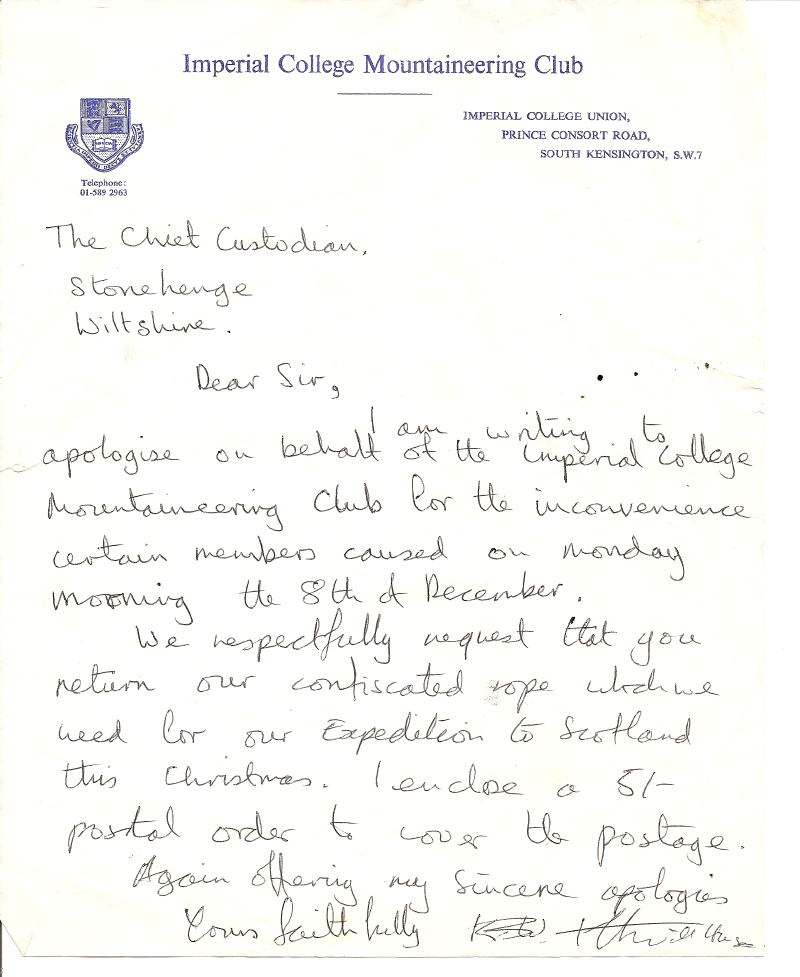 Imperial College Mountaineering Club
IMPERIAL COLLEGE UNION,
PRINCE CONSORT ROAD,
SOUTH KENSINGTON, S.W.7
Telephone:
01-589 2963
The Chief Custodian,
Stonehenge
Wiltshire.
Dear Sir,
I am writing to
apologise on behalf of the Imperial College
Mountaineering Club for the inconvenience
certain members caused on monday
morning the 8th of December.
We respectfully request that you
return our confiscated rope which we
need for our Expedition to Scotland
this Christmas. I enclose a 5/-
postal order to cover the postage.
Again offering my sincere apologies
Yours faithfully